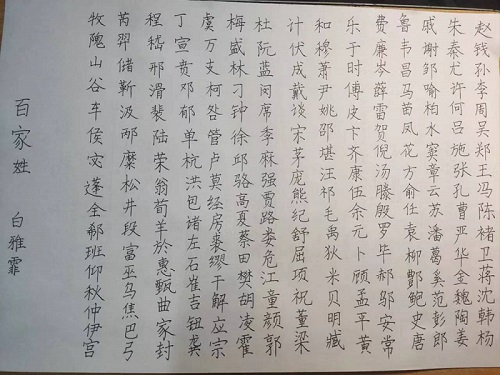 赵钱孙李周吴郑王冯陈褚卫蒋沈韩杨
朱秦尤许何吕施张孔曹严华金魏陶姜
戚谢邹喻柏水窦章云苏潘葛奚范彭郎
鲁韦昌马苗凤花方俞任袁柳酆鲍史唐
费廉岑薛雷贺倪汤滕殷罗毕郝邬安常
乐于时傅皮卞齐康伍余元卜顾孟平黄
和穆萧尹姚邵堪汪祁毛禹狄米贝明臧
计伏成戴谈宋茅庞熊纪舒屈项祝董梁
杜阮蓝闵席季麻强贾路娄危江童颜郭
梅盛林刁钟徐邱骆高夏蔡田樊胡凌霍
虞万支柯昝管卢莫经房裘缪干解应宗
丁宣贲邓郁单杭洪包诸左石崔吉钮龚
程嵇邢滑裴陆荣翁荀羊於惠甄曲家封
芮羿储靳汲邴糜松井段富巫乌焦巴弓
牧隗山谷车侯宓蓬全郗班仰秋仲伊宫
百家姓 白雅霏